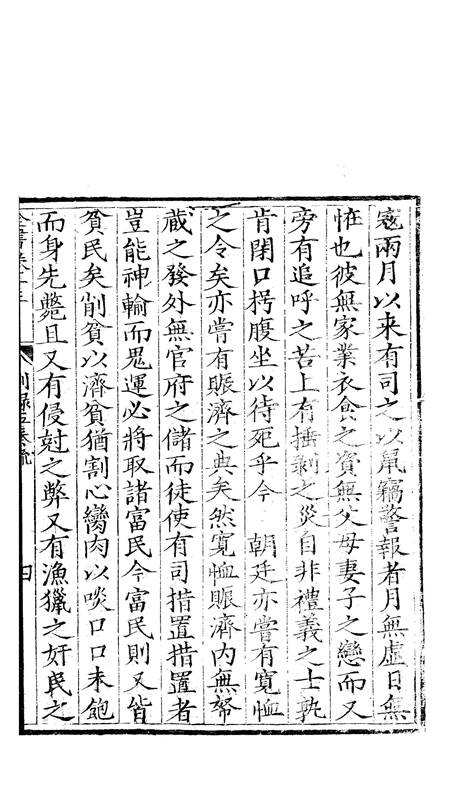 寇兩月以来有司之以鼠竊警報者月無虛日無
恠也彼無家業衣食之資無父母妻子之戀而又
旁有追呼之苦上有捶剥之災自非禮義之士孰
肯閉口枵腹坐以待死乎今　朝廷亦嘗有寛恤
之令矣亦嘗有賑濟之典矣然寛恤賑濟内無帑
藏之發外無官府之儲而徒使有司措置措置者
豈能神輸而鬼運必將取諸富民今富民則又皆
貧民矣削貧以濟貧猶割心臠肉以啖口口未飽
而身先斃且又有侵尅之弊又有漁獵之奸民之
全書卷十三
別録五奏疏
四